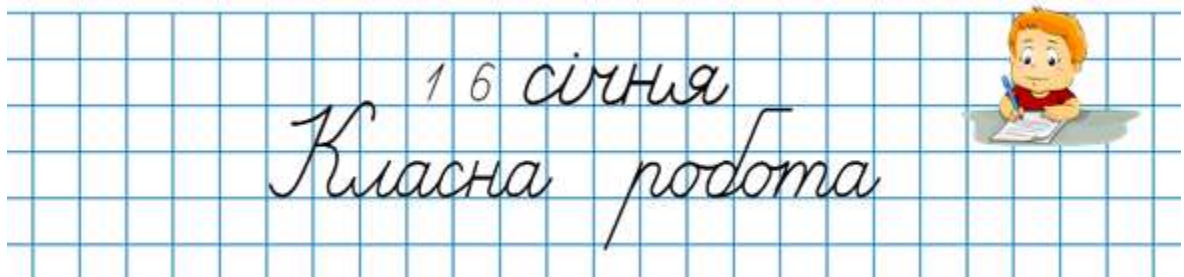 16 січня
Класна робота